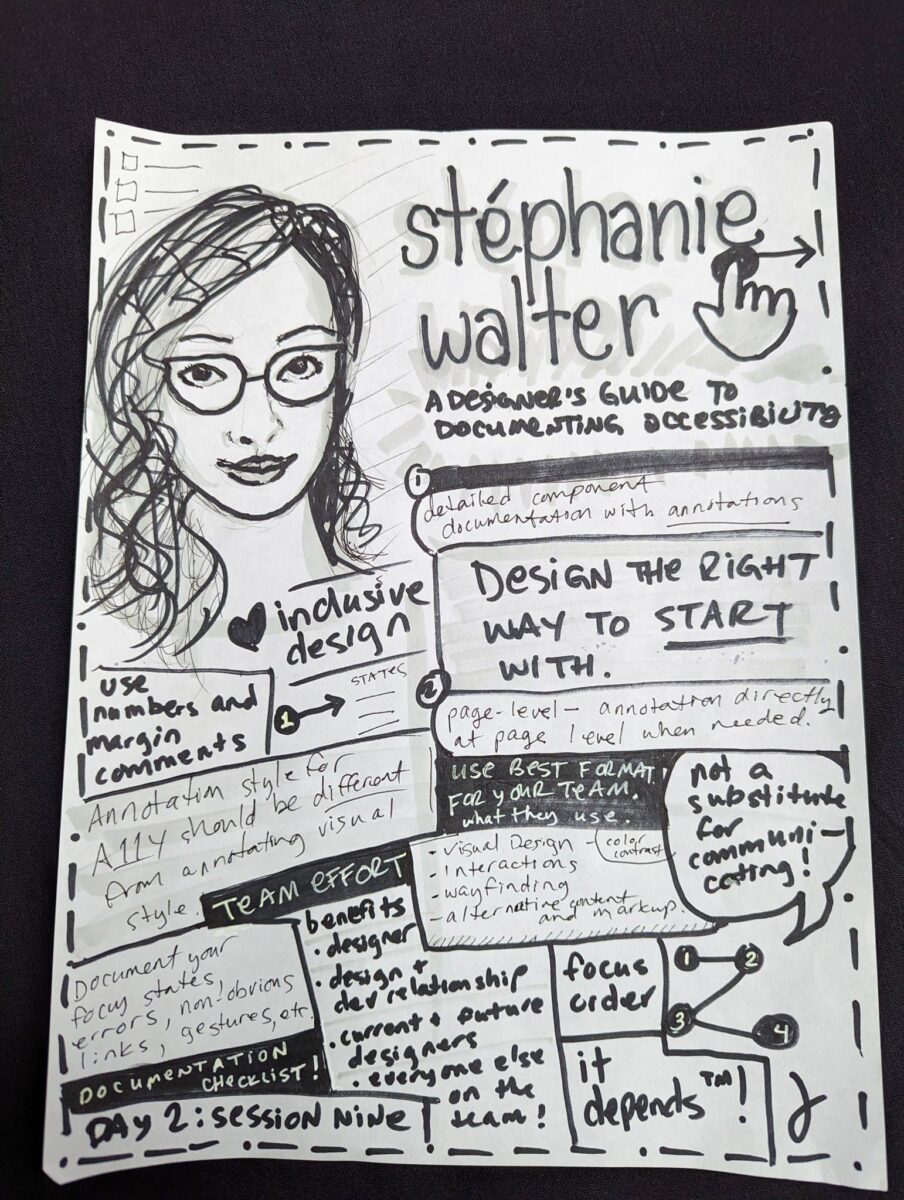 stéphanie
walter
A DESIGNER'S GUIDE TO
DOCUMENTING ACCESSIBILITY
1
detailed component
documentation with annotations
DESIGN THE RIGHT
WAY TO START
WITH.
inclusive
design
use
numbers and
margin
comments
1
STATES
2
page-level - annotation directly
at page level when needed.
Annotation style for
A11Y should be different
from annotating visual
style.
USE BEST FORMAT
FOR YOUR TEAM.
what they use.
not a
substitute
for
communi-
cating!
• visual Design - color
contrast
• interactions
• wayfinding
- alternative content
and markup.
TEAM EFFORT
benefits
• designer
• design +
dev relationship
• current + future
designers
• everyone else
on the
team!
Document your
focus states,
errors, non-obvious
links, gestures, etc.
DOCUMENTATION
CHECKLIST!
DAY 2: SESSION NINE
focus
order
1
2
3
4
it
depends™!